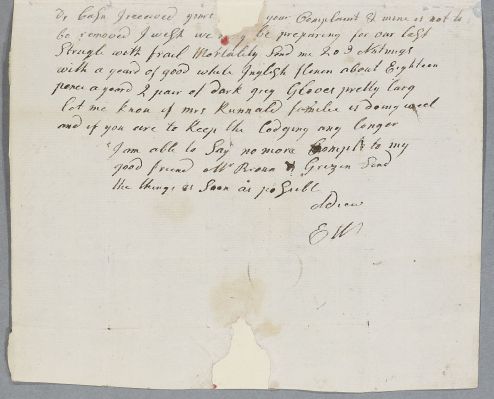 Dr Casn I receaved yours your Complaint & mine is not to
be removed I wish we may be preparing for our last
Strugle with frail Mortality Send me 20d Nutmigs
with a yeard of good white Inglesh flenen about Eighteen
pence a yeard 2 pair of dark grey Gloves pretty larg
let me know if mrs Runnald familie is doing weel
and if you are to keep the Lodging any longer
I am able to Say no more Compts to my
good friend Mr Broun & Grizen Send
the things as Soon as posible
Adiew
E W